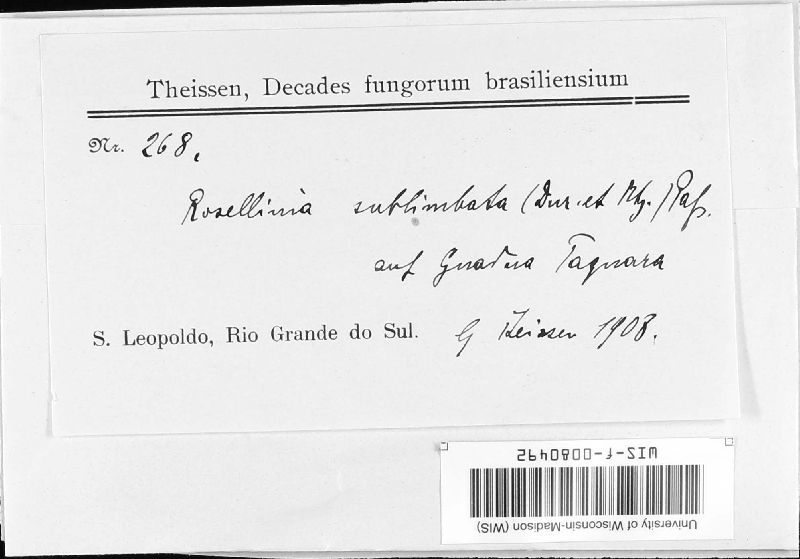 Theissen, Decades fungorum brasiliensium
Nr. 268.
Rosellinia sublimbata (Dur. et Mtg.) Pass.
auf Guadua Taquara
S. Leopoldo, Rio Grande do Sul. lg Theissen 1908.
WIS-f-0080492
University of Wisconsin-Madison (WIS)